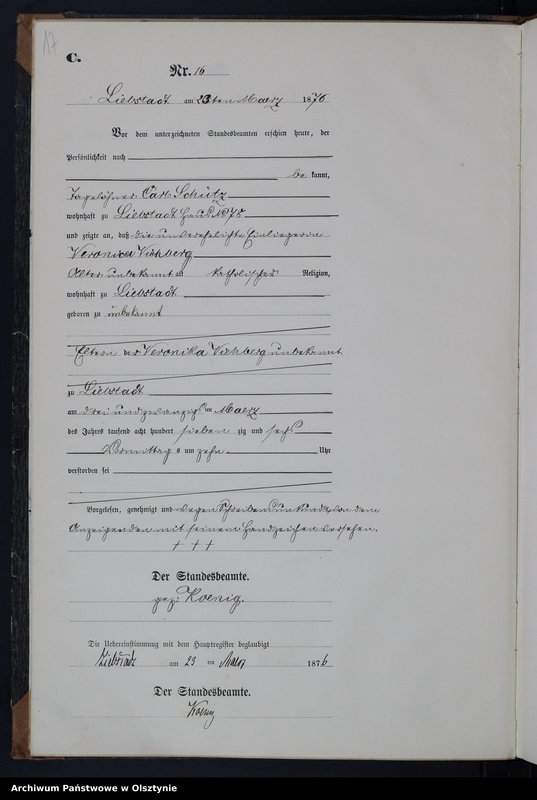 17
C.
Nr. 16
Liebstadt am 23ten Maerz 1876
Vor dem unterzeichneten Standesbeamten erschien heute, der
Persönlichkeit nach
be kannt,
Tagelöhner Carl Schütz
wohnhaft zu Liebstadt Haus No 78
und zeigte an, daß die unverehelichte Einliegerin
Veronica Vichberg
Alter unbekannt alt katholischer Religion,
wohnhaft zu Liebstadt
geboren zu unbekannt
Eltern der Veronika Vichberg unbekannt
zu Liebstadt
am drei und zwanzigsten Maerz
des Jahres tausend acht hundert sieben zig und sechs
Vormittag s um zehn Uhr
verstorben sei
Vorgelesen, genehmigt und wegen Schreibensunkunde von dem
Anzeigenden mit seinem Handzeichen versehen.
† † †
Der Standesbeamte.
gez: Koenig.
Die Uebereinstimmung mit dem Hauptregister beglaubigt
Liebstadt am 23 ten Maerz 1876
Der Standesbeamte.
Koenig
Archiwum Państwowe w Olsztynie